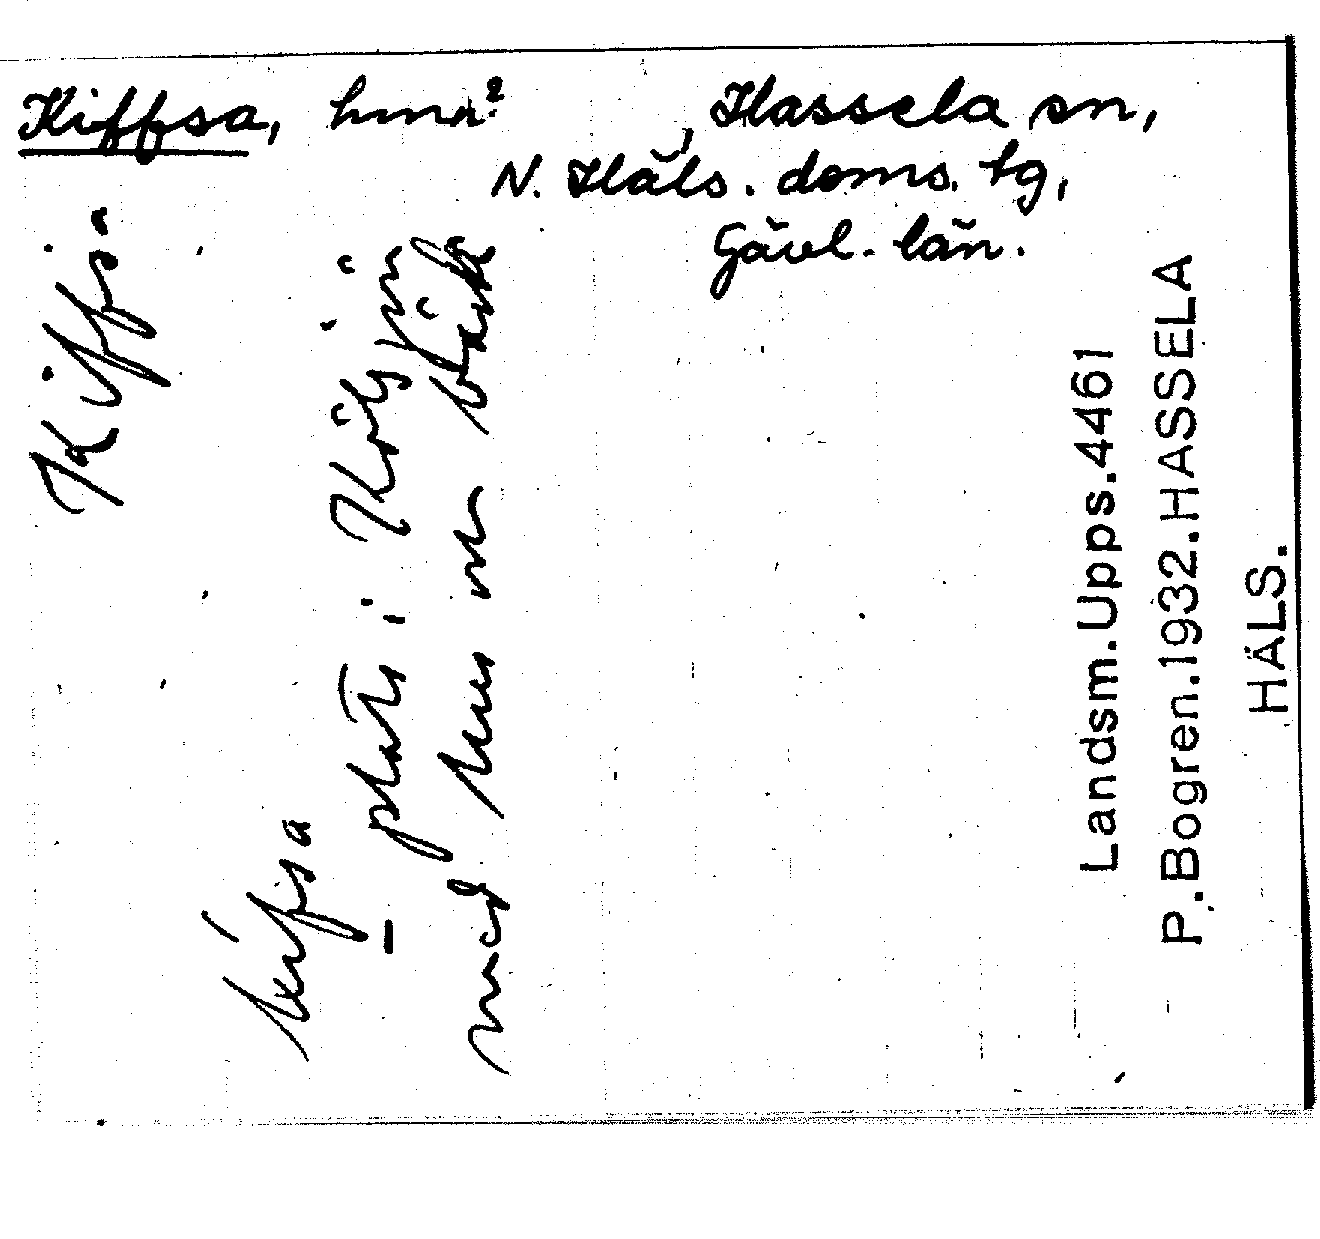 Kiffsa, hmn? Hassela sn,
N. Häls. doms. tg,
Gävl. län.
Kiffsa
kifsa
– plats i Kölsjön
med hus vn bäck
Landsm. Upps. 4461
P. Bogren. 1932. HASSELA
HÄLS.